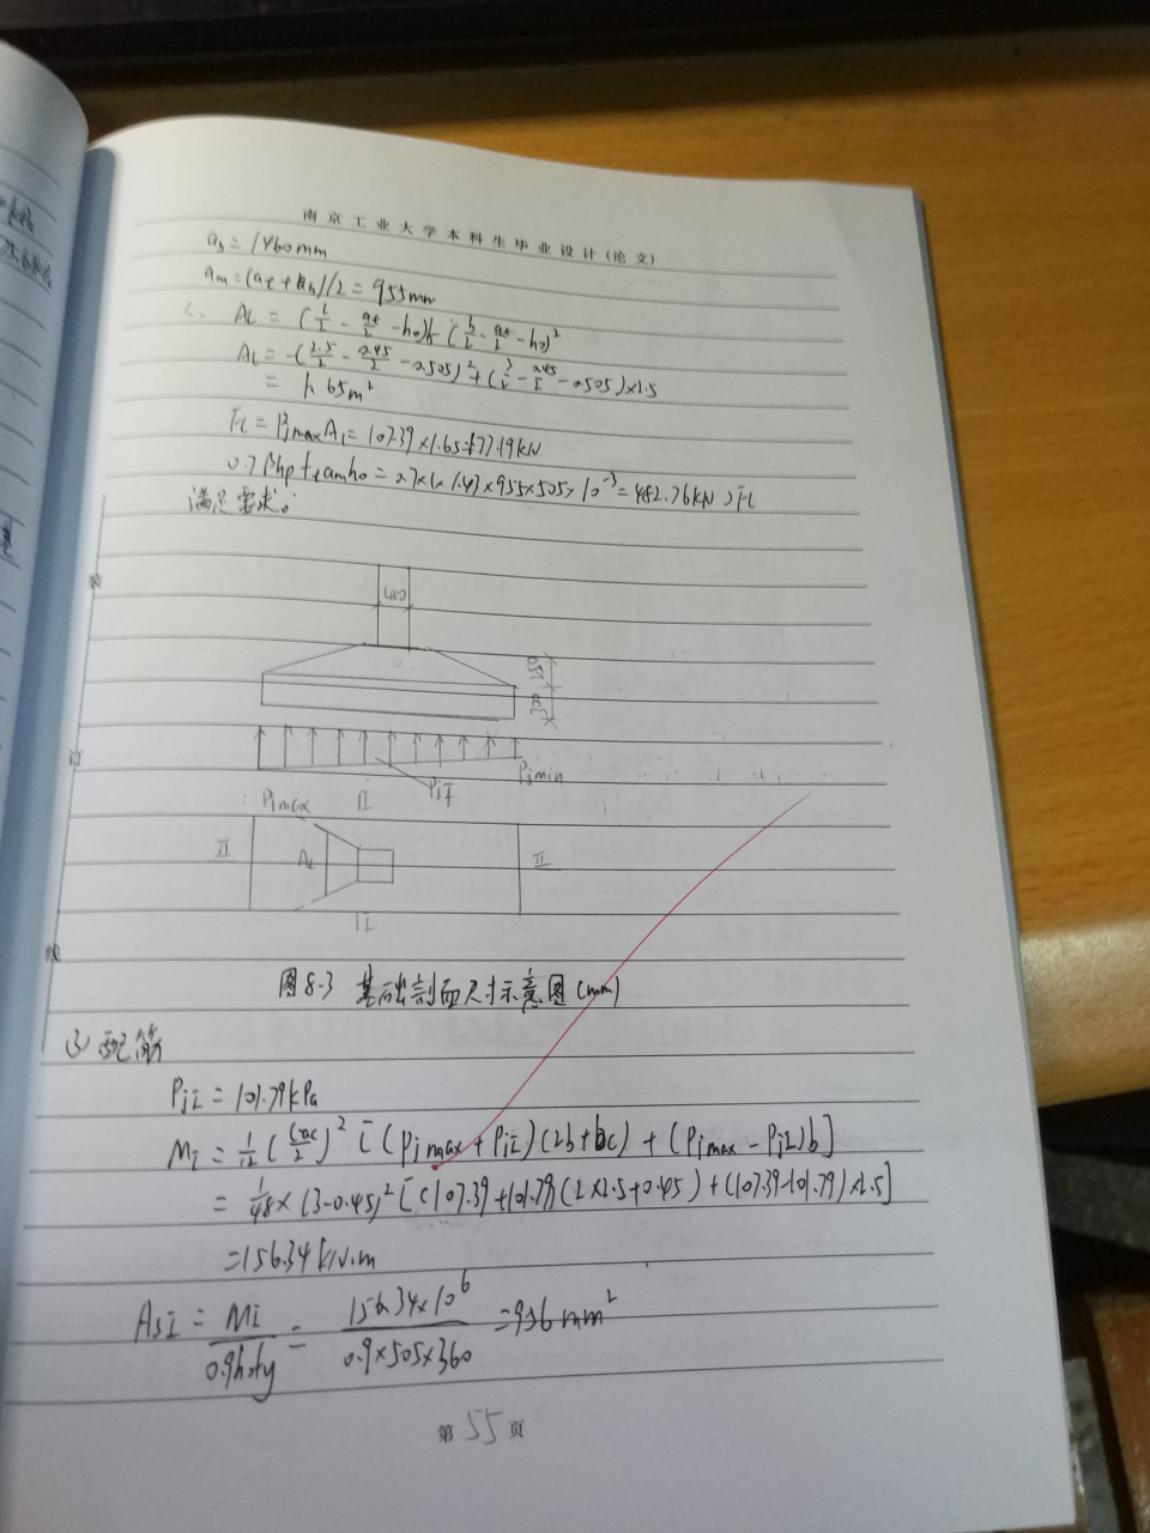 南京工业大学本科生毕业设计(论文)
ab = 1460mm
am = (at + ab)/2 = 955mm
Al = (l/2 - at/2 - h0)b - (b/2 - at/2 - h0)²
Al = -(2.5/2 - 0.45/2 - 0.505)² + (3/2 - 0.45/2 - 0.505)×2.5
= 1.65m²
Fl = PjmaxAl = 107.39×1.65=177.19kN
0.7βhp ft am h0 = 0.7×1×1.43×955×505×10⁻³ = 482.76kN >Fl
满足要求。
装
订
线
450
Pjmin
PjI
Pjmax II
II Al II
II
图8-3 基础剖面尺寸示意图(mm)
(3) 配筋
PjI = 101.79kPa
MI = 1/12 ( )² [(Pjmax + PjI)(2b+bc) + (Pjmax - PjI)b]
= 1/48 × (3-0.45)² [(107.39+101.79)(2×2.5+0.45) + (107.39-101.79)×2.5]
=156.34kN.m
AsI = MI/0.9h0fy = 156.34×10⁶/0.9×505×360 =956mm²
第55页